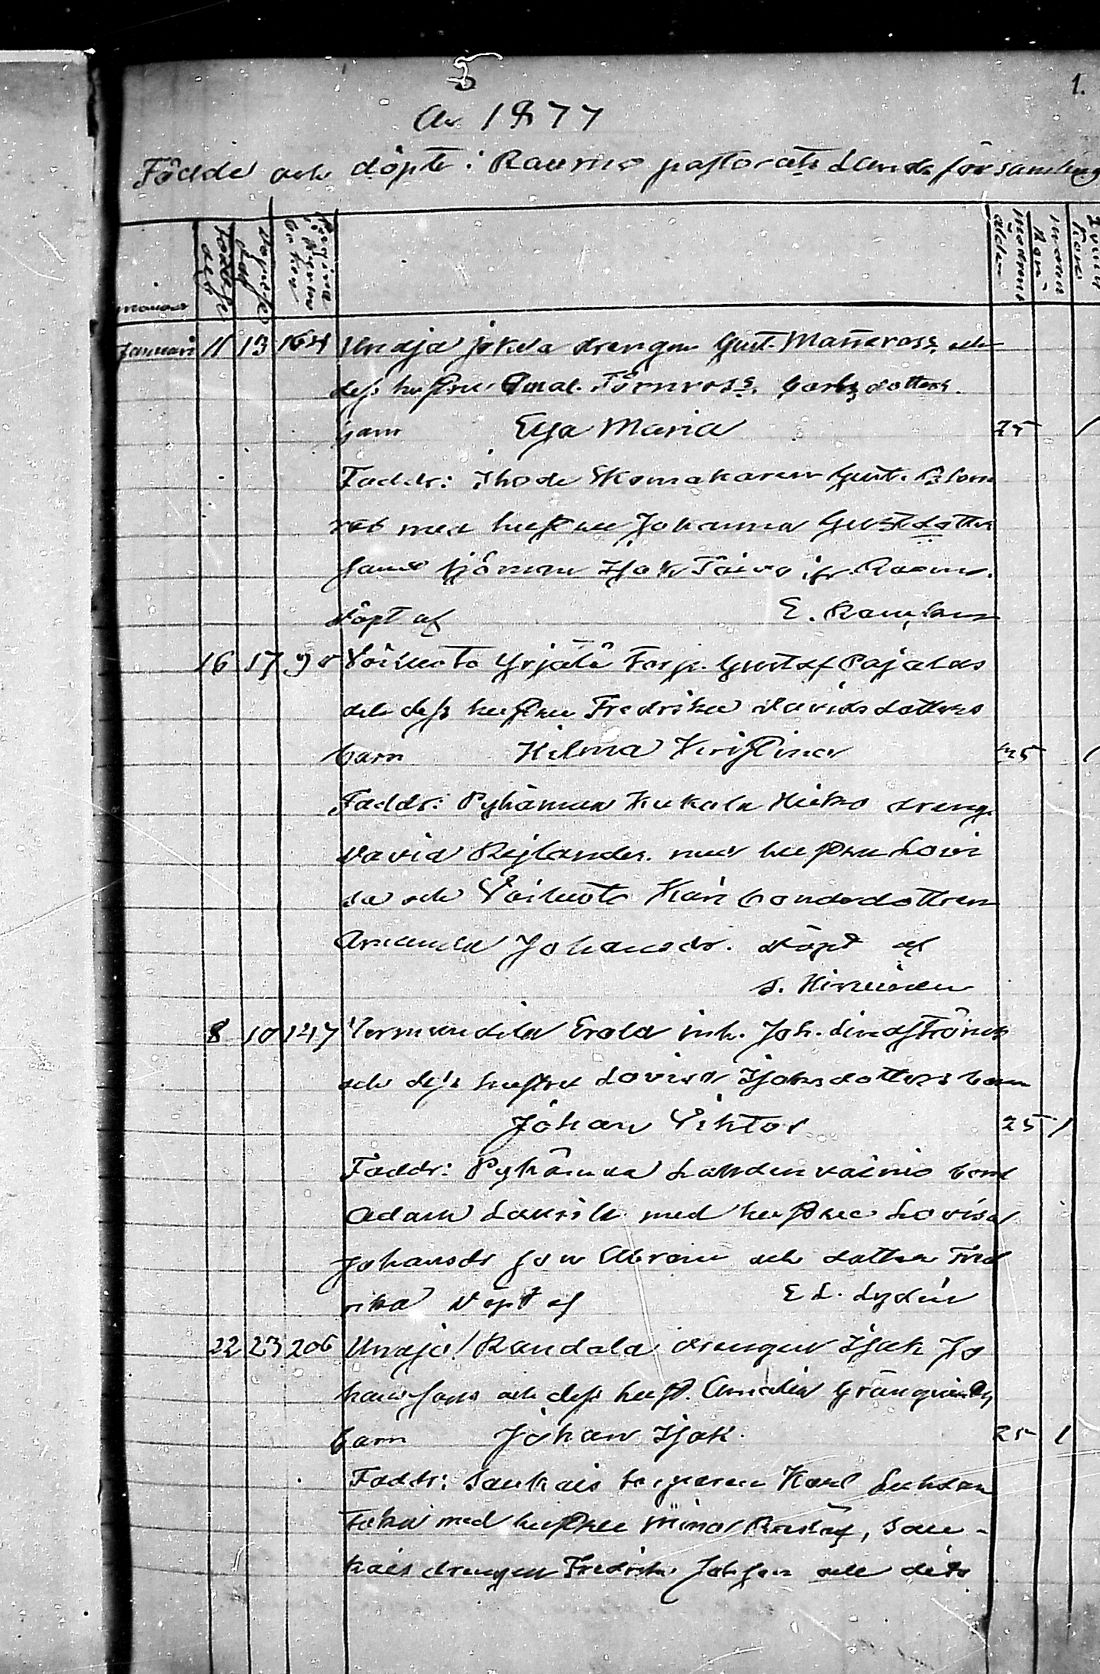 5
1.
År 1877
Födde och döpte i Raumo pastorats Landsförsamling
månad
moderns ålder
Januari 11 13 164 Unaja Jokela drengen Gust. Manross och
dess hustru Amal. Törnross, Carlsdotters
barn Eva Maria 25 1
Faddr: Ihode Skomakaren Gust. Blom
med hustru Johanna Gustdotter
samt sjöman Isak Toivo ifr. Raumo.
döpt af E.
16 17 Voiluoto Yrjälä Torp. Gustaf Pajalas
och dess hustru Fredrika Davidsdotters
barn Hilma Kristina 35 1
Faddr: Pyhämaa Kukola dreng.
David Rejlander med hustru Lovi
sa och Voiluoto Kari bondedottren
Amanda Johansdr. döpt af
s. Hirvinen
8 10 147 Vermuntila Erola inh. Joh. Lindström
och dess hustru Lovisa Isaksdotters barn
Johan Viktor 25 1
Faddr: Pyhämaa Lahdenvainio bond
Adam Laurila med hustru Lovisa
Johansdr son Abram och dottren Fred
rika Döpt af E L. Lydén
22 23 206 Unaja Randala drengen Isak Jo
hanssons och dess hust. Amalia Granqvists
barn Johan Isak 25 1
Faddr: Saukais torparen Karl
med hustru Mina, Sau-
kais drengen Fredrik Johsson och dito